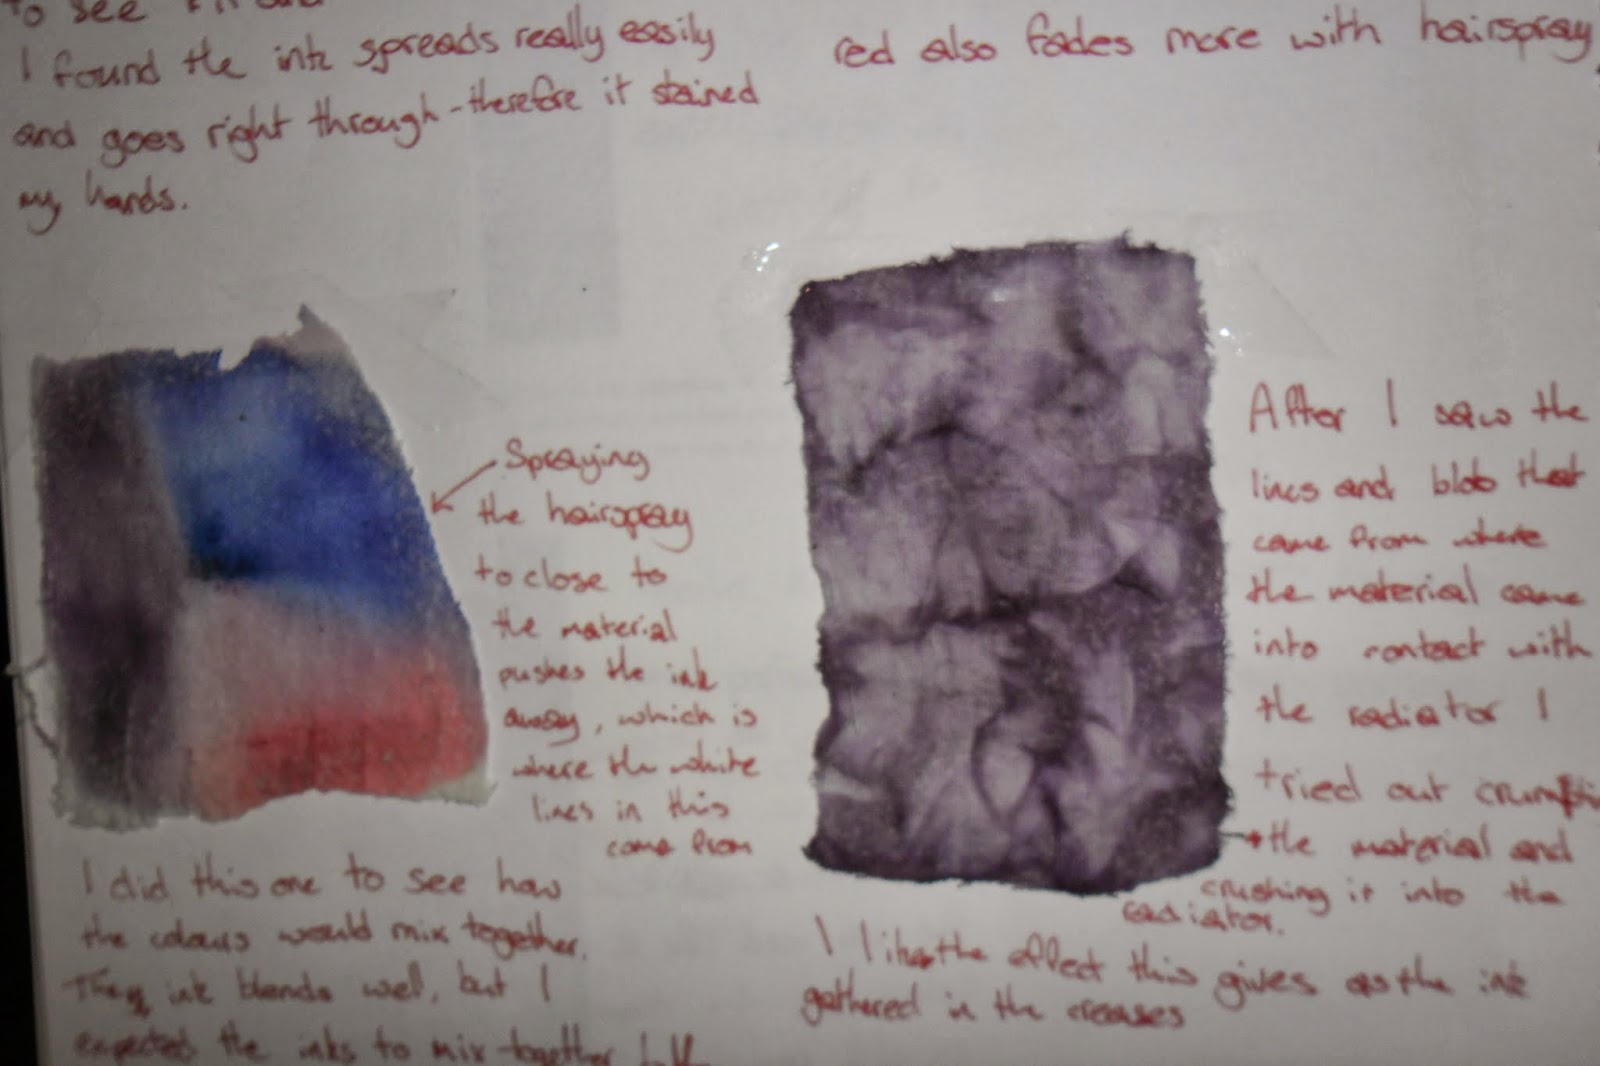 to see
I found the ink spreads really easily
and goes right through - therefore it stained
my hands.
red also fades more with hairspray
Spraying
the hairspray
to close to
the material
pushes the ink
away, which is
where the white
lines in this
come from
I did this one to see how
the colours would mix together.
They ink blends well, but I
expected the inks to mix together
After I saw the
lines and blob that
came from where
the material came
into contact with
the radiator I
tried out
the material and
crushing it into the
radiator.
I like the effect this gives as the ink
gathered in the creases